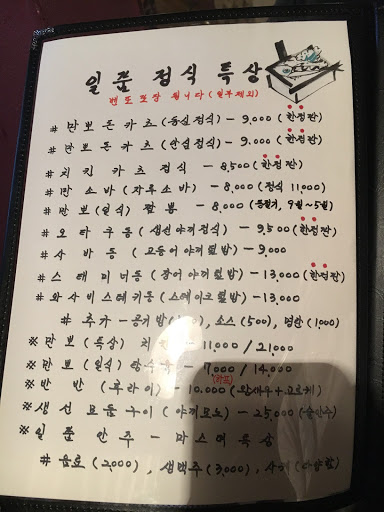 일품 정식 특상
벤또 포장 됩니다 (일부제외)
# 만뽀 돈카츠 (등심정식) - 9,000 (한정판)
# 만뽀 돈카츠 (안심정식) - 9,000 (한정판)
# 치킨 카츠 정식 - 8,500 (한정판)
# 만 소바 (자루소바) - 8,000 (정식 11,000)
# 만뽀 (일식) 짬뽕 - 8,000 (동절기, 9월~5월)
# 오타구동 (생선야끼정식) - 9,500 (한정판)
# 사바동 (고등어야끼덮밥) - 9,000
# 스태미너동 (장어야끼덮밥) - 13,000 (한정판)
# 와사비스테키동 (스테이크덮밥) - 13,000
# 추가 - 공기밥 ( ), 소스 (500), 명란 (1,000)
※ 만뽀 (특상) 치 - 11,000 / 21,000
※ 만뽀 (일식) 탕수육 - 7,000 / 14,000
※ 반반 (후라이) - 10,000 (왕새우+고로케)
※ 생선 모듬구이 (야끼모노) - 25,000
※ 일품 안주 - 마스터 특상
# 음료 (2,000), 생맥주 (3,000),